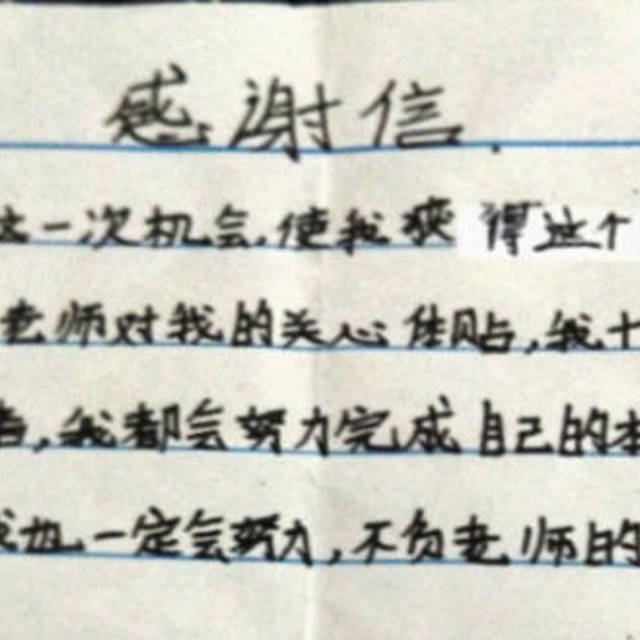 感谢信.
这一次机会,使我获得这个
老师对我的关心体贴,我十
我都会努力完成自己的本
我也一定会努力,不负老师的